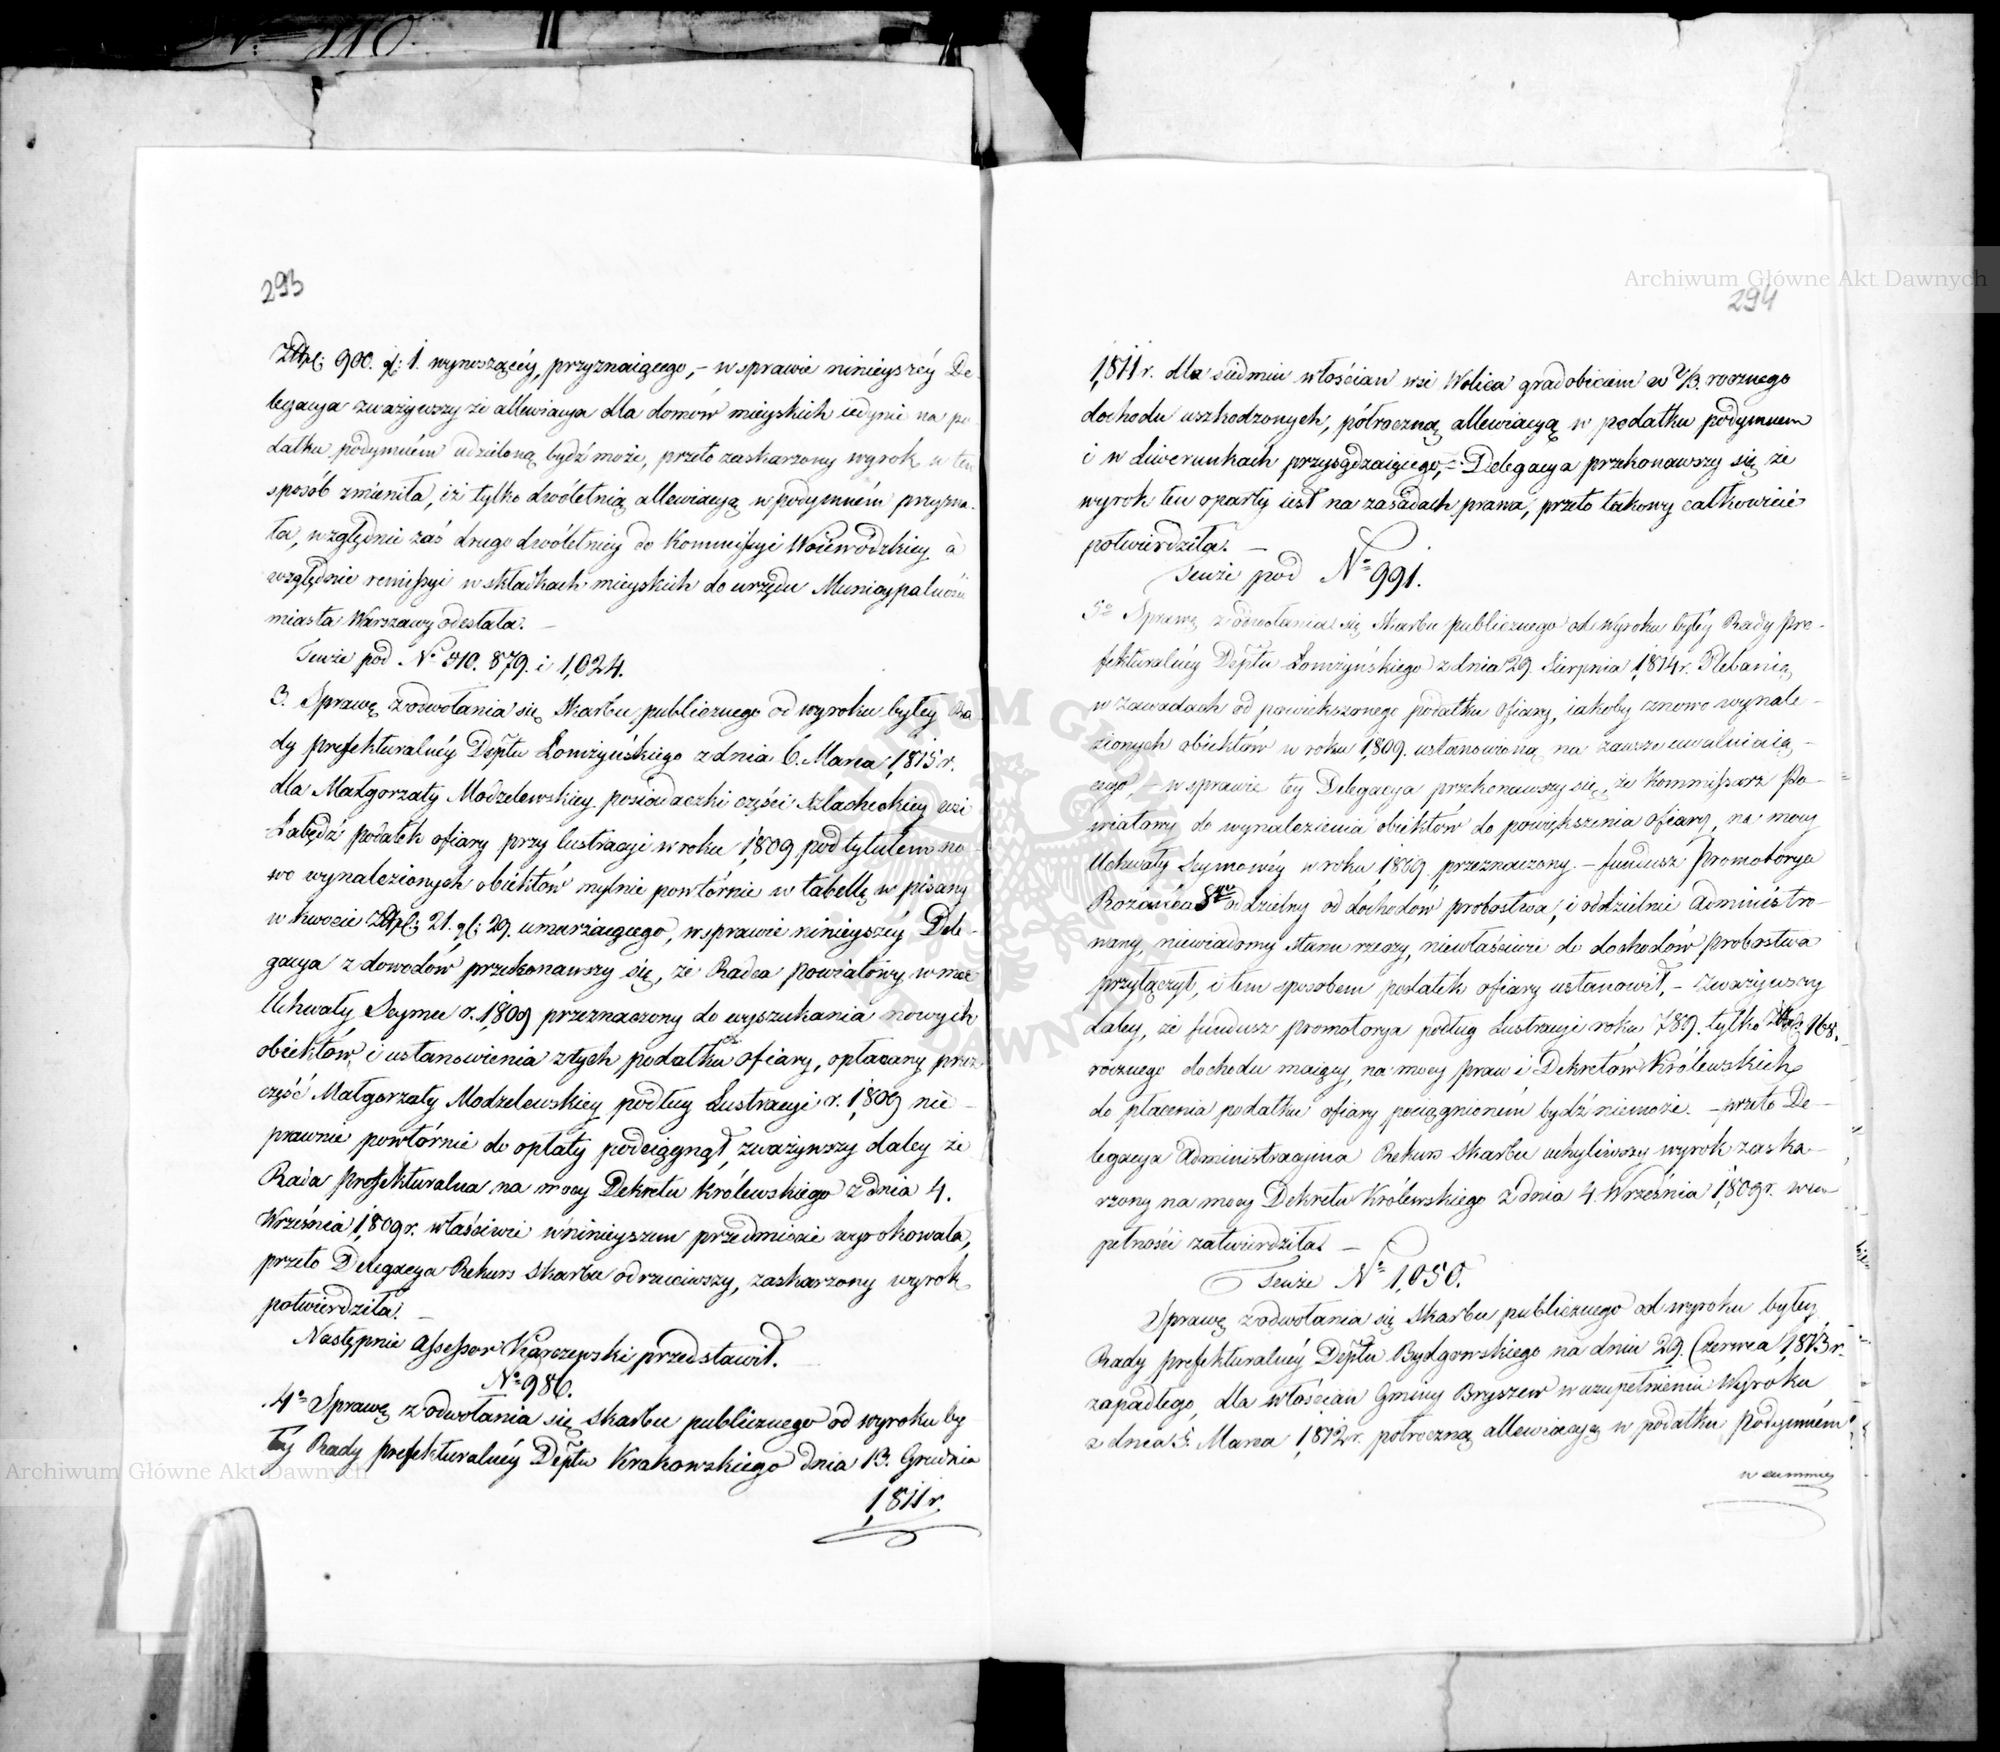 No 110.
293
Złtpl: 900. gl: 1. wynoszącéy, przyznaiącego, – w sprawie ninieyszéy De-
legacya zważywszy że allewiacya dla domów mieyskich iedynie na po
datku podymném udzieloną bydź może, przeto zaskarżony wyrok w ten
sposób zmieniła, iż tylko dwóletnią allewiacyą w podymném przyzna-
ła, względnie zaś drugo dwóletniey do Kommissyi Woiewódzkiey à
względnie remissyi w składkach mieyskich do urzędu Municypalności
miasta Warszawy odesłała. —
Tenże pod No 510. 879. i 1,024.
3. Sprawę z odwołania się Skarbu publicznego od wyroku byłey Ra
dy prefekturalnéy Deptu Łomżyńskiego z dnia 6. Marca 1,815 r.
dla Małgorzaty Modzelewskiey posiadaczki części szlacheckiey wsi
Łabędź podatek ofiary przy lustracyi w roku 1,809 pod tytułem no
wo wynalezionych obiektów mylnie powtórnie w tabellę w pisany
w kwocie Złtpl: 21. gl: 29. umarzaiącego, w sprawie ninieyszéy Dele-
gacya z dowodów przekonawszy się, że Radca powiatowy w moc
Uchwały Seymu r. 1,809 przeznaczony do wyszukania nowych
obiektów i ustanowienia z tych podatku ofiary, opłacany przez
część Małgorzaty Modzelewskiey podług Lustracyi r. 1,809 nie-
prawnie powtórnie do opłaty podciągnął, zważywszy daley że
Rada prefekturalna na mocy Dekretu Królewskiego z dnia 4.
Września 1,809 r. właściwie w ninieyszem przedmiocie wyrokowała,
przeto Delegacya Rekurs Skarbu odrzuciwszy, zaskarżony wyrok
potwierdziła. —
Następnie Assessor Karczewski przedstawił.
No 986.
4o Sprawę z odwołania się skarbu publicznego od wyroku by
łéy Rady prefekturalnéy Deptu Krakowskiego dnia 13. Grudnia
1,811 r.
294
1,811 r. dla siedmiu włościan wsi Wolica gradobiciem w 2/3. rocznego
dochodu uszkodzonych, półroczną allewiacyą w podatku podymnem
i w liwerunkach przysądzaiącego, – Delegacya przekonawszy się że
wyrok ten oparty iest na zasadach prawa, przeto takowy całkowicie
potwierdziła. —
Tenże pod No 991.
5o Sprawę z odwołania się Skarbu publicznego od wyroku byłéy Rady Pre-
fekturalnéy Deptu Łomżyńskiego z dnia 29. Sierpnia 1,814 r. Plebanią
w Zawadach od powiekszonego podatku ofiary, iakoby znowo wynale-
zionych obiektów w roku 1,809. ustanowioną na zawsze uwalniaią-
cego, – w sprawie tey Delegacya przekonawszy się, że Kommissarz Po-
wiatowy do wynalezienia obiektów do powiększenia ofiary, na mocy
Uchwały Seymowéy w roku 1,809 przeznaczony. – fundusz Promotorya
Rożańca Sgo oddzielny od dochodów probostwa, i oddzielnie Administro-
wany, niewiadomy stanu rzeczy, niewłaściwie do dochodów probostwa
przyłączył, i tem sposobem podatek ofiary ustanowił, – zważywszy
daley, że fundusz promotorya podług Lustracyi roku 789. tylko Złtpl: 168.
rocznego dochodu maiący, na mocy praw i Dekretów Królewskich
do płacenia podatku ofiary pociągnioném bydź niemoże. – przeto De-
legacya Administracyina Rekurs Skarbu uchyliwszy wyrok zaska-
rżony na mocy Dekretu Królewskiego z dnia 4. Września 1,809 r. w zu-
pełności zatwierdziła. —
Tenże No 1,050.
Sprawę z odwołania się Skarbu publicznego od wyroku byłey
Rady prefekturalnéy Deptu Bydgowskiego na dniu 29. Czerwca 1,813 r.
zapadłego, dla włościan Gminy Bryszew w uzupełnieniu Wyroku
z dnia 5. Marca 1,812 r. półroczną allewiacyą w podatku Podymném
w summie
Archiwum Główne Akt Dawnych
Archiwum Główne Akt Dawnych